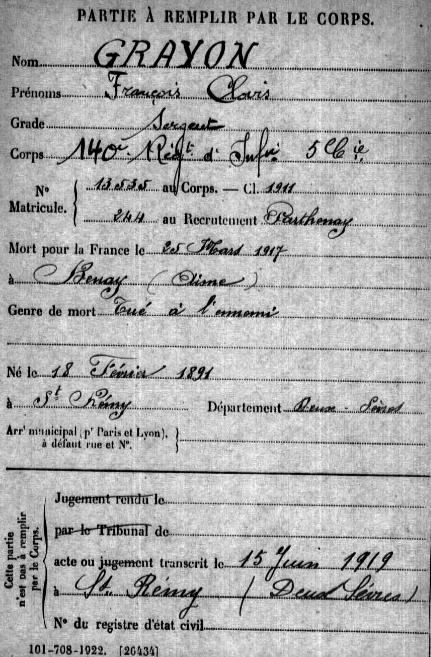 PARTIE À REMPLIR PAR LE CORPS.
Nom GRAYON
Prénoms François Clovis
Grade Sergent
Corps 140e Régt d'Infie 5e Cie
N° Matricule. 13535 au Corps. — Cl. 1911
244 au Recrutement Parthenay
Mort pour la France le 25 Mars 1917
à Benay (Aisne)
Genre de mort Tué à l'ennemi
Né le 18 Février 1891
à St Rémy Département Deux-Sèvres
Arrt municipal (pr Paris et Lyon),
à défaut rue et N°.
Cette partie n'est pas à remplir par le Corps.
Jugement rendu le
par le Tribunal de
acte ou jugement transcrit le 15 Juin 1919
à St Rémy (Deux Sèvres)
N° du registre d'état civil
101-708-1922. [26434]